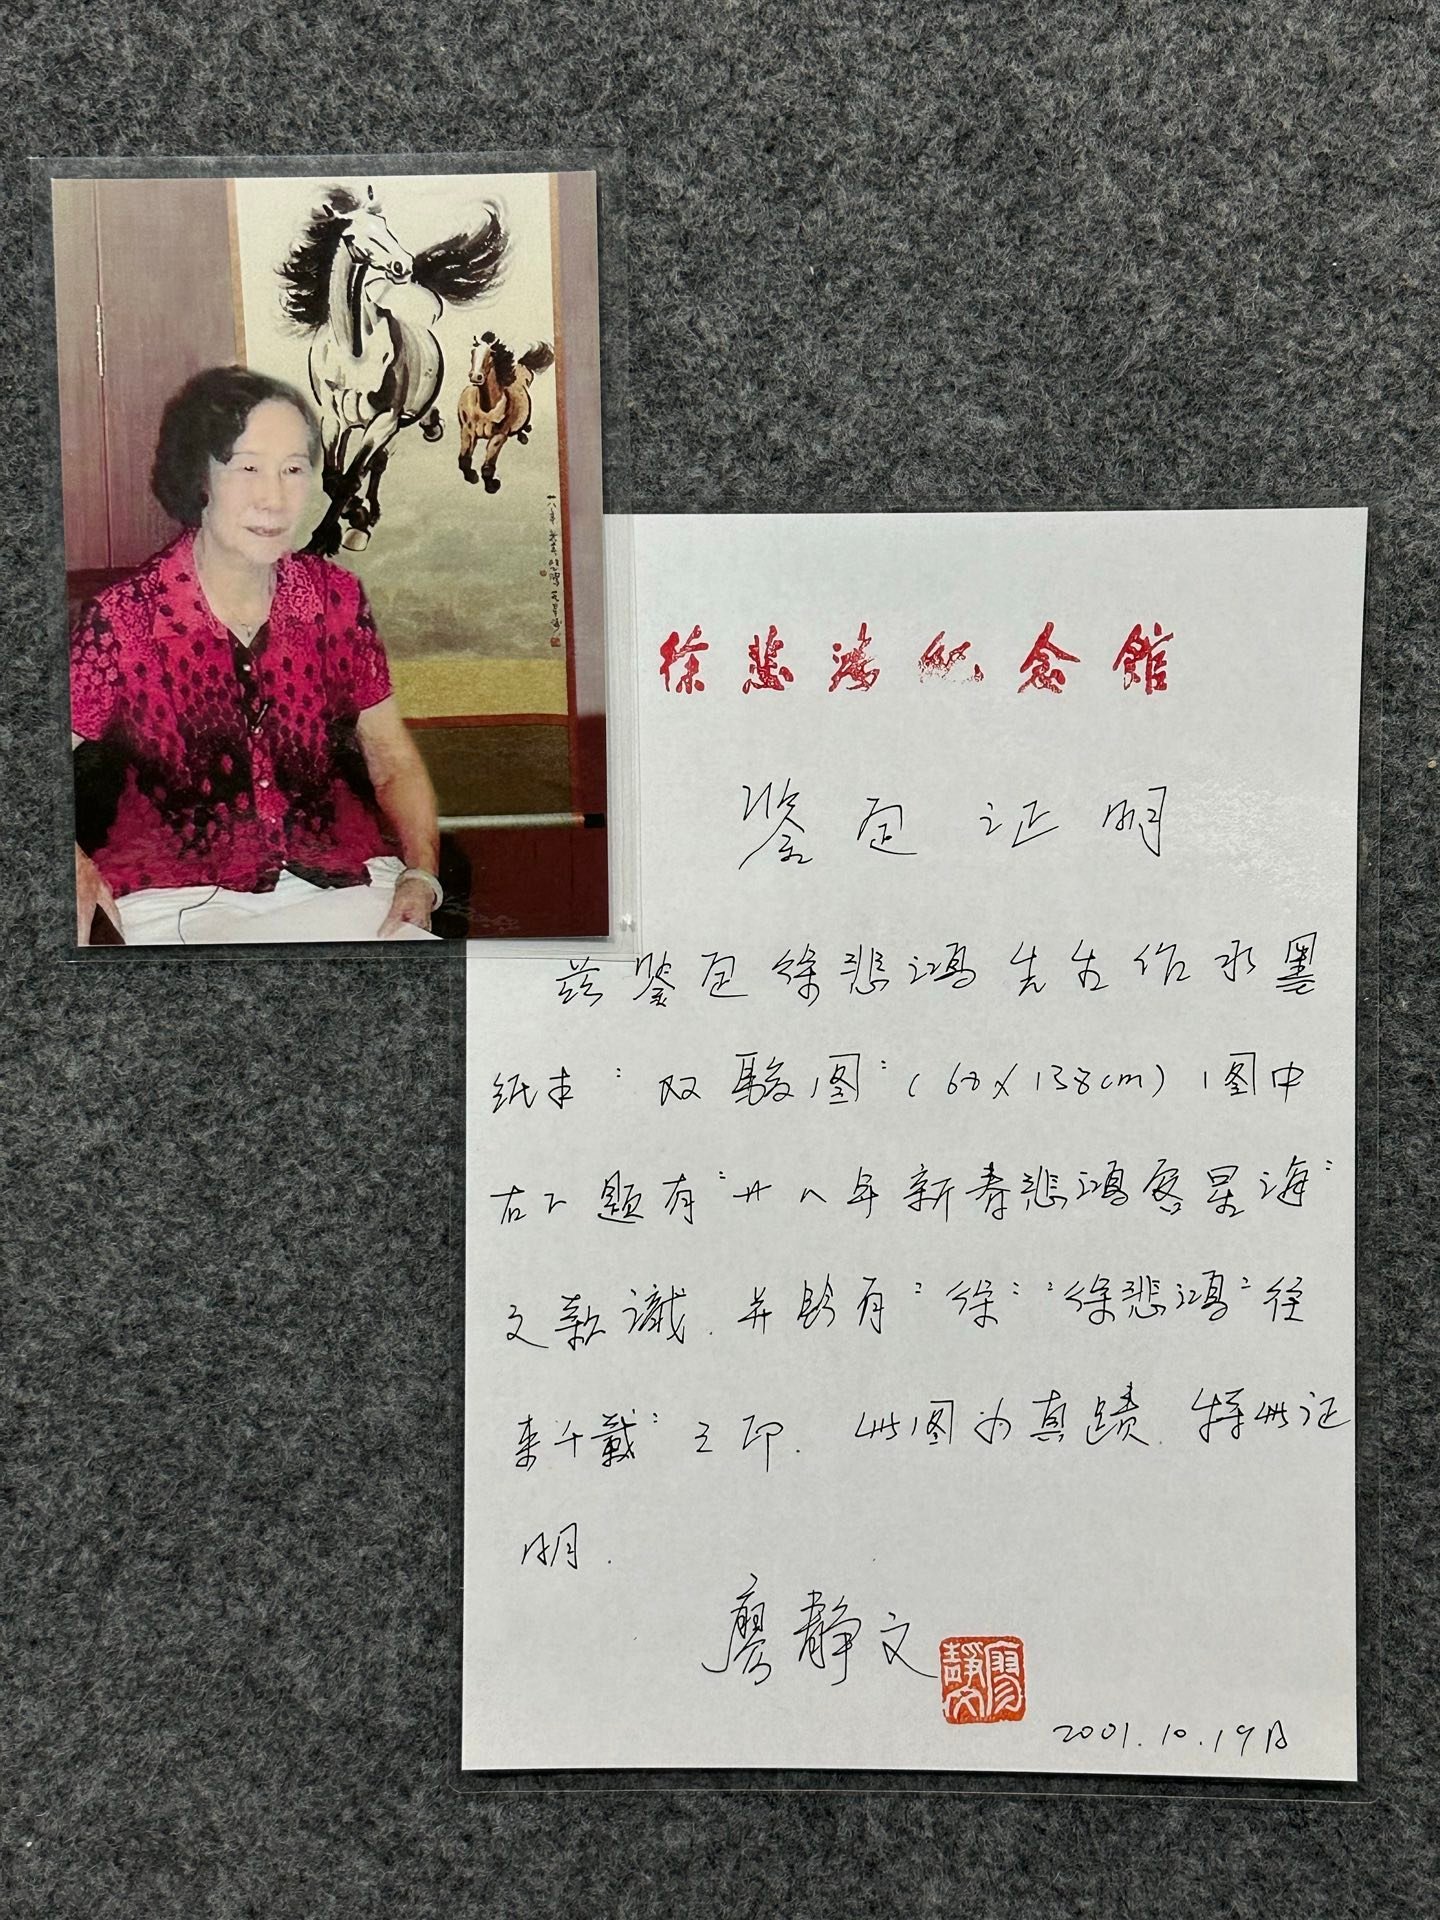 廿八年 新春 悲鴻 客星海
徐悲鴻纪念馆
鉴定证明
兹鉴定徐悲鸿先生作水墨
纸本"双骏图"(68×138cm)图中
右下题有"廿八年新春悲鸿客星海"
文款识.并钤有"徐""徐悲鸿""往
来千载"之印.此图为真蹟.特此证
明.
廖静文
廖靜文
2001.10.19日